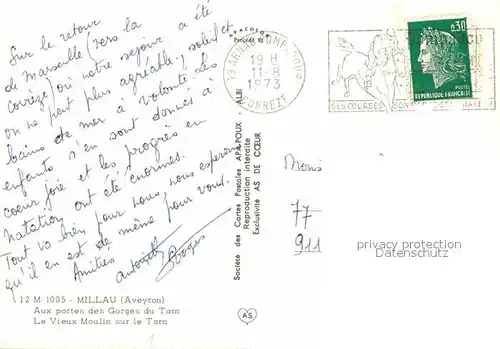 Sur le retour
de Marseille (vers la
Corrèze) où notre séjour a été
on ne peut plus agréable : soleil et
bains de mer à volonté. Les
enfants s'en sont donnés à
coeur joie et les progrès en
natation ont été énormes.
Tout va bien pour nous, nous espérons
qu'il en est de même pour vous.
Amitiés
12 M · 1005 - MILLAU (Aveyron)
Aux portes des Gorges du Tarn
Le Vieux Moulin sur le Tarn
Société des Cartes Postales APA-POUX - ALBI
Reproduction interdite
Exclusivité AS DE CŒUR
AS
APACOLOR
19 H
11-8
1973
CORREZE
SES COURSES
0,30
POSTES
REPUBLIQUE FRANÇAISE
77
911
privacy protection
Datenschutz